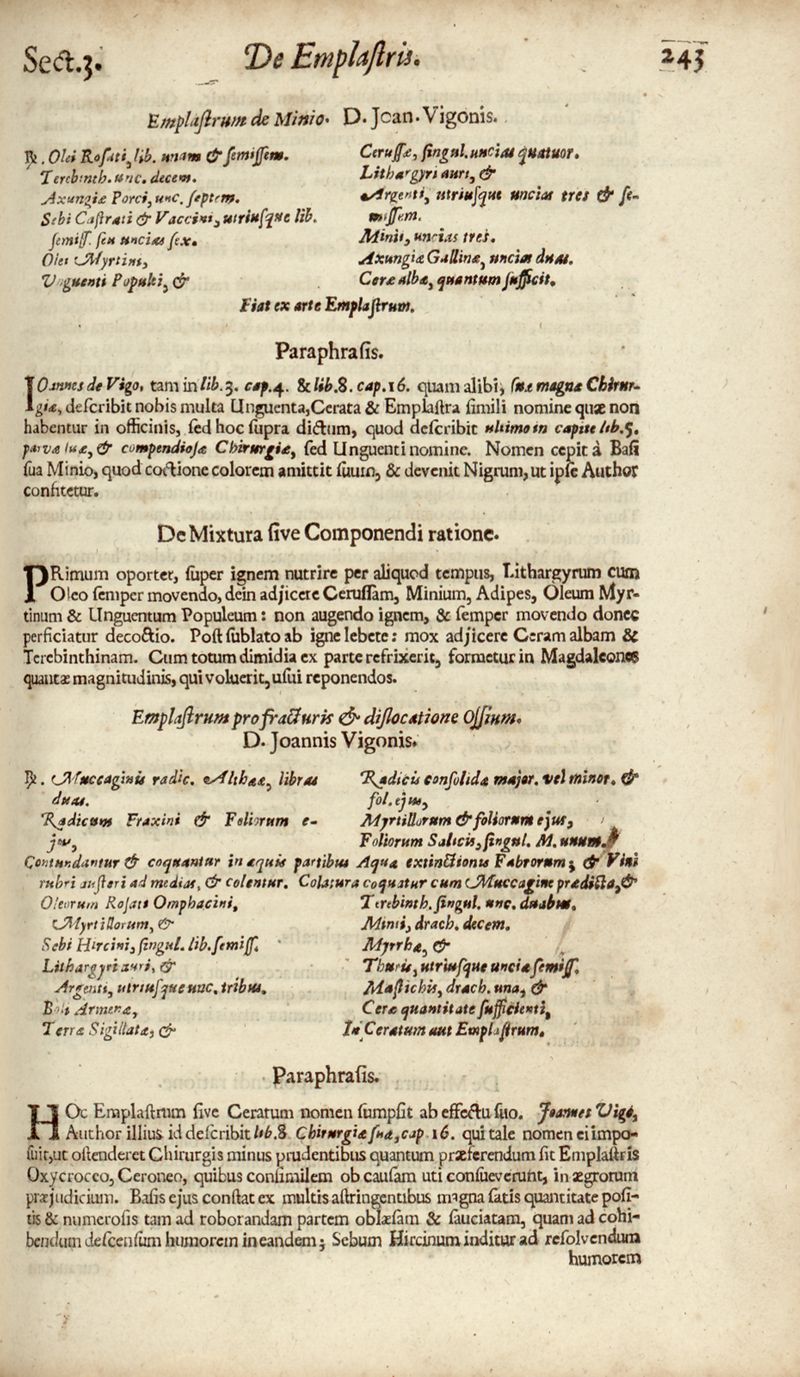 Sect.3. De Emplaſtris. 243
Emplaſtrum de Minio. D. Joan. Vigonis.
℞. Olei Roſati, lib. unam & ſemiſſem.
Terebinth. unc. decem.
Axungiæ Porci, unc. ſeptem.
Sebi Caſtrati & Vaccini, utriuſque lib.
ſemiſſ. ſeu uncias ſex.
Olei Myrtini,
Unguenti Populei, &
Ceruſſæ, ſingul. uncias quatuor.
Lithargyri auri, &
Argenti, utriuſque uncias tres & ſe-
miſſem.
Minii, uncias tres.
Axungiæ Gallinæ, uncias duas.
Ceræ albæ, quantum ſufficit.
Fiat ex arte Emplaſtrum.
Paraphraſis.
IOannes de Vigo, tam in lib.3. cap.4. & lib.8. cap.16. quam alibi, ſuæ magnæ Chirur-
giæ, deſcribit nobis multa Unguenta, Cerata & Emplaſtra ſimili nomine quæ non
habentur in officinis, ſed hoc ſupra dictum, quod deſcribit ultimo in capite lib.5.
parvæ ſuæ, & compendioſæ Chirurgiæ, ſed Unguenti nomine. Nomen cepit à Baſi
ſua Minio, quod coctione colorem amittit ſuum, & devenit Nigrum, ut ipſe Author
confitetur.
De Mixtura ſive Componendi ratione.
PRimum oportet, ſuper ignem nutrire per aliquod tempus, Lithargyrum cum
Oleo ſemper movendo, dein adjicere Ceruſſam, Minium, Adipes, Oleum Myr-
tinum & Unguentum Populeum: non augendo ignem, & ſemper movendo donec
perficiatur decoctio. Poſt ſublato ab igne lebete: mox adjicere Ceram albam &
Terebinthinam. Cum totum dimidia ex parte refrixerit, formetur in Magdaleones
quantæ magnitudinis, qui voluerit, uſui reponendos.
Emplaſtrum pro fracturis & diſlocatione Oſſium.
D. Joannis Vigonis.
℞. Muccaginis radic. Altheæ, libras
duas.
Radicum Fraxini & Foliorum e-
jus,
Radicis conſolida major. vel minor. &
fol. ejus,
Myrtillorum & foliorum ejus,
Foliorum Salicis, ſingul. M. unum.
Contundantur & coquantur in æquis partibus Aqua extinctionis Fabrorum, & Vini
rubri auſteri ad medias, & colentur. Colatura coquatur cum Muccagine prædicta, &
Oleorum Roſati Omphacini,
Myrtillorum, &
Sebi Hircini, ſingul. lib. ſemiſſ.
Lithargyri auri, &
Argenti, utriuſque unc. tribus.
Boli Armenæ,
Terræ Sigillatæ, &
Terebinth. ſingul. unc. duabus.
Minii, drach. decem.
Myrrhæ, &
Thuris, utriuſque uncia ſemiſſ.
Maſtichis, drach. una, &
Ceræ quantitate ſufficienti,
In Ceratum aut Emplaſtrum.
Paraphraſis.
HOc Emplaſtrum ſive Ceratum nomen ſumpſit ab effectu ſuo. Joannes Vigo,
Author illius id deſcribit lib.8 Chirurgiæ ſuæ, cap 16. qui tale nomen ei impo-
ſuit, ut oſtenderet Chirurgis minus prudentibus quantum præferendum ſit Emplaſtris
Oxycroceo, Ceroneo, quibus conſimilem ob cauſam uti conſueverunt, in ægrorum
præjudicium. Baſis ejus conſtat ex multis aſtringentibus magna ſatis quantitate poſi-
tis & numeroſis tam ad roborandam partem oblæſam & ſauciatam, quam ad cohi-
bendum deſcenſum humorem in eandem; Sebum Hircinum inditur ad reſolvendum
humorem